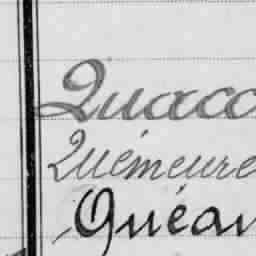 Quaco
Quémeure
Quéau